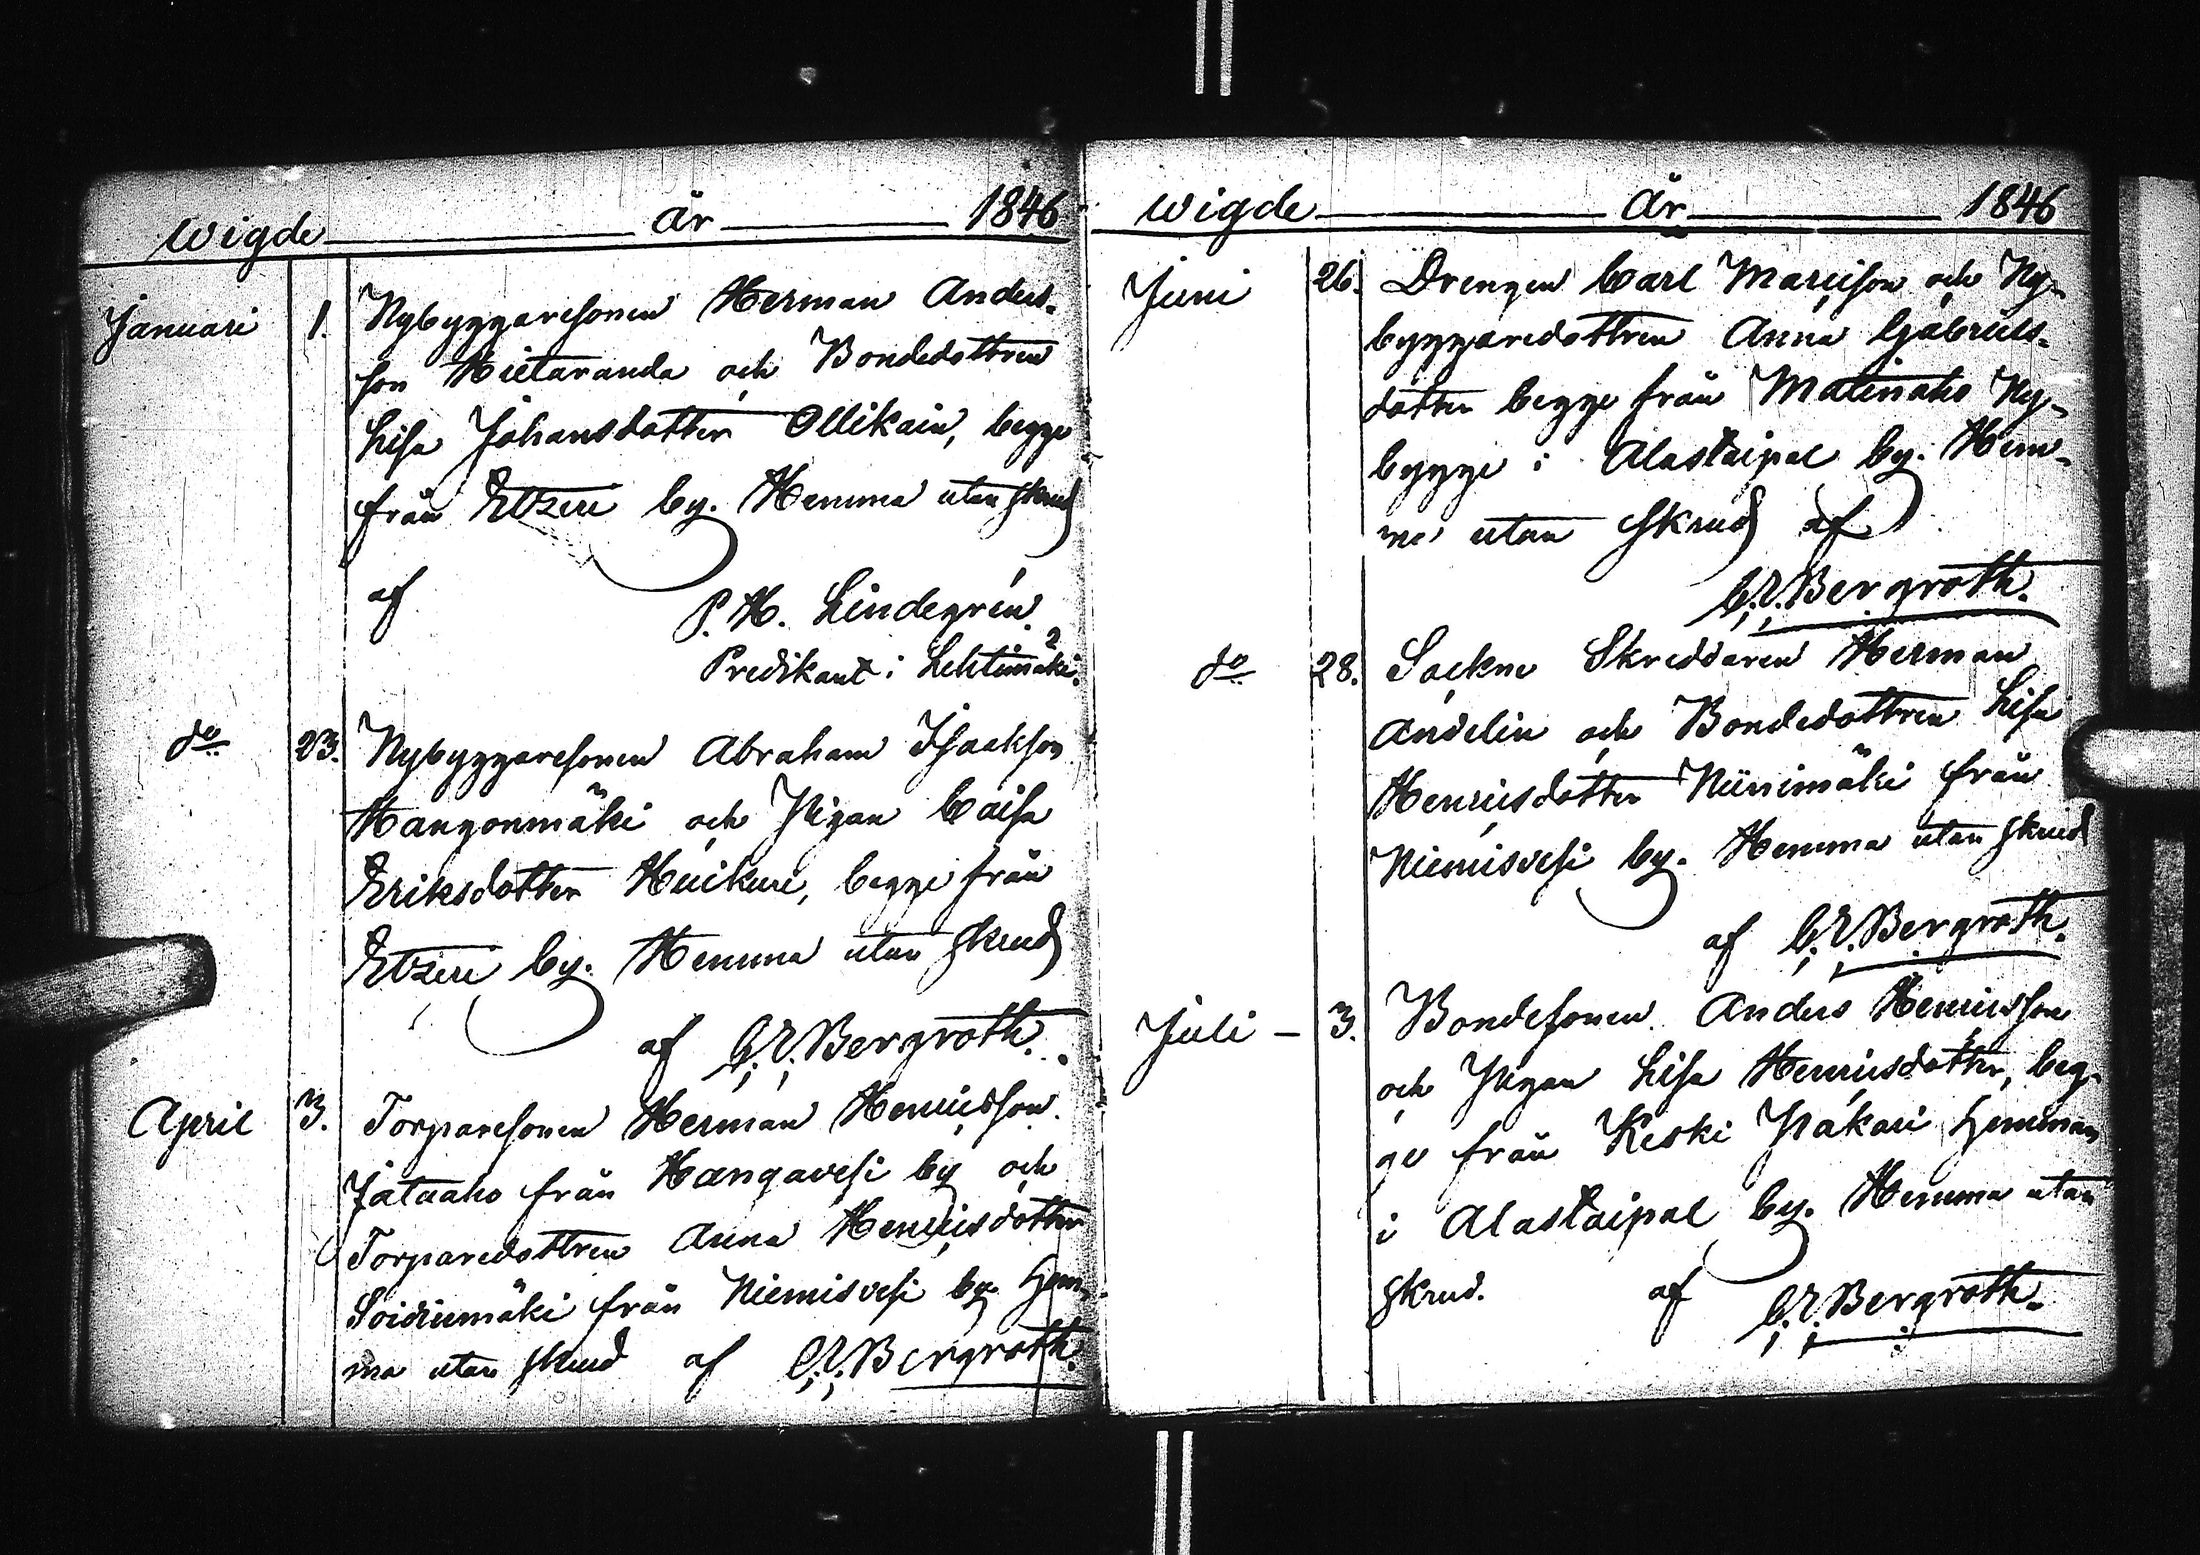 Wigde År 1846
Januari 1. Nybyggaresonen Herman Anders-
son Hietaranda och Bondedottren
Lisa Johansdotter Ollikain, begge
från Etzeri by. Hemma utan skrud
af P. H. Lindegrén.
Predikant i Lehtimäki.
do 23. Nybyggaresonen Abraham Isaakson
Hangonmäki och Pigan Caisa
Eriksdotter Huikuri, begge från
Etzeri by. Hemma utan skrud
af C. E. Bergroth.
April 3. Torparesonen Herman Henricsson
Jätuaho från Hangavesi by och
Torparedottren Anna Henricsdotter
Soidinmäki från Niemisvesi by. Hem-
ma utan skrud af C. E. Bergroth.
Wigde År 1846
Juni 26. Drengen Carl Marcison och Ny-
byggaredottren Anna Gabriels-
dotter begge från Matinaho Ny-
bygge i Alastaipal by. Hem-
ma utan skrud af
C. E. Bergroth.
do 28. Sockne Skreddaren Herman
Andelin och Bondedottren Lisa
Henricsdotter Niinimäki från
Niemisvesi by. Hemma utan skrud
af C. E. Bergroth.
Juli - 3. Bondesonen Anders Henricsson
och Pigan Lisa Henricsdotter, beg-
ge från Keski Pakari hemman
i Alastaipal by. Hemma utan
skrud. af C. E. Bergroth.